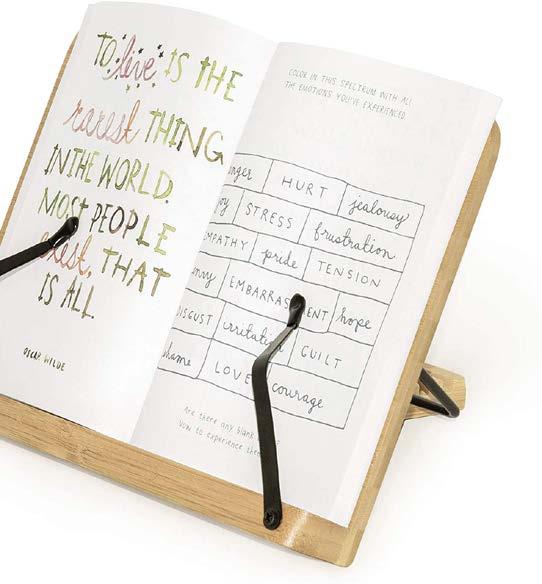 TO live IS THE
rarest THING
IN THE WORLD.
MOST PEOPLE
exist, THAT
IS ALL.
OSCAR WILDE
COLOR IN THIS SPECTRUM WITH ALL
THE EMOTIONS YOU'VE EXPERIENCED
nger HURT jealousy
oy STRESS frustration
EMPATHY pride TENSION
nvy EMBARRAS ENT hope
DISGUST irritati GUILT
hame LOVE courage
Are there any blank
Vow to experience them